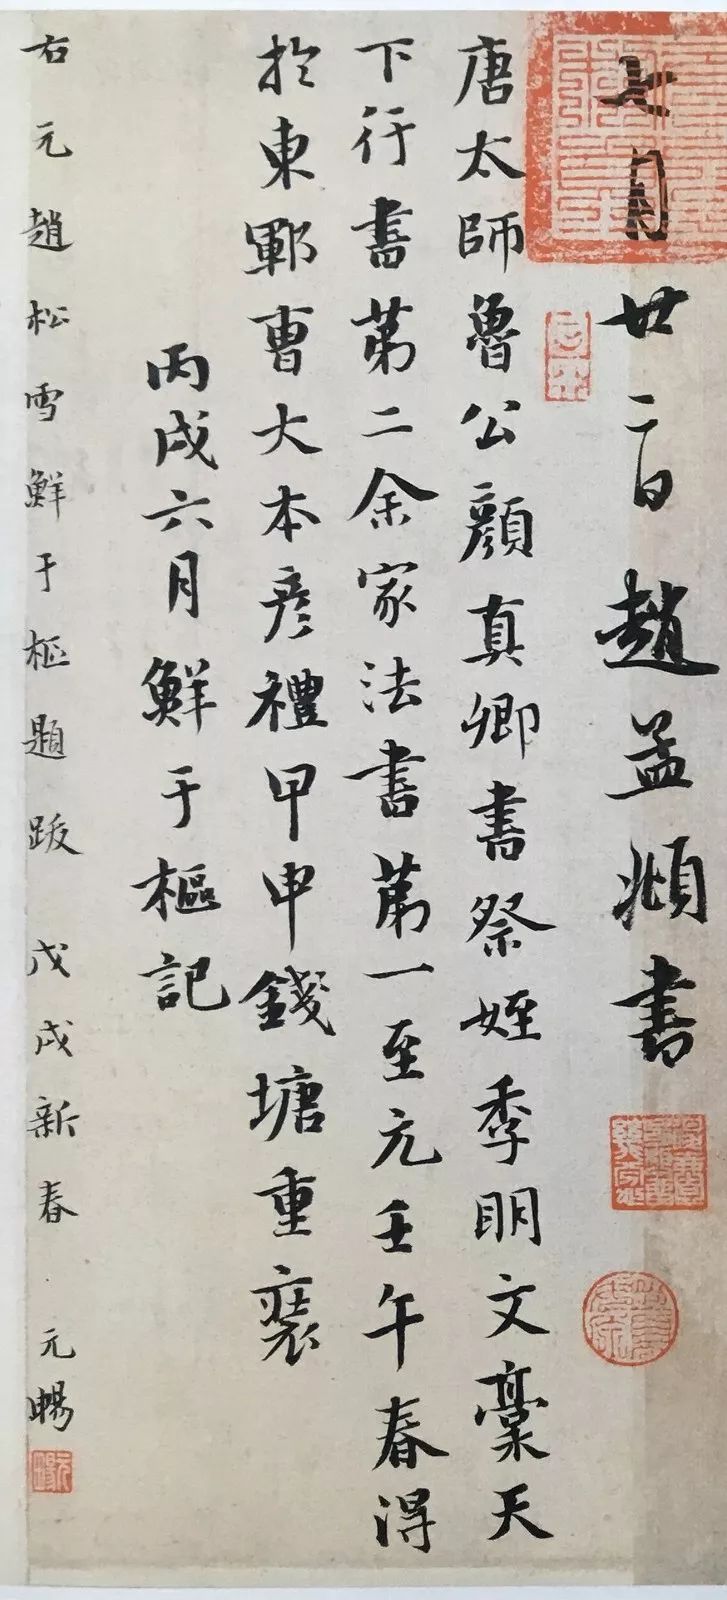 七月廿二日趙孟頫書
唐太師魯公顏真卿書祭姪季明文稾天
下行書苐二余家法書苐一至元壬午春得
於東鄆曹大本彥禮甲申錢塘重裝
丙戌六月鮮于樞記
右元趙松雪鮮于樞題跋 戊戌新春 元暢